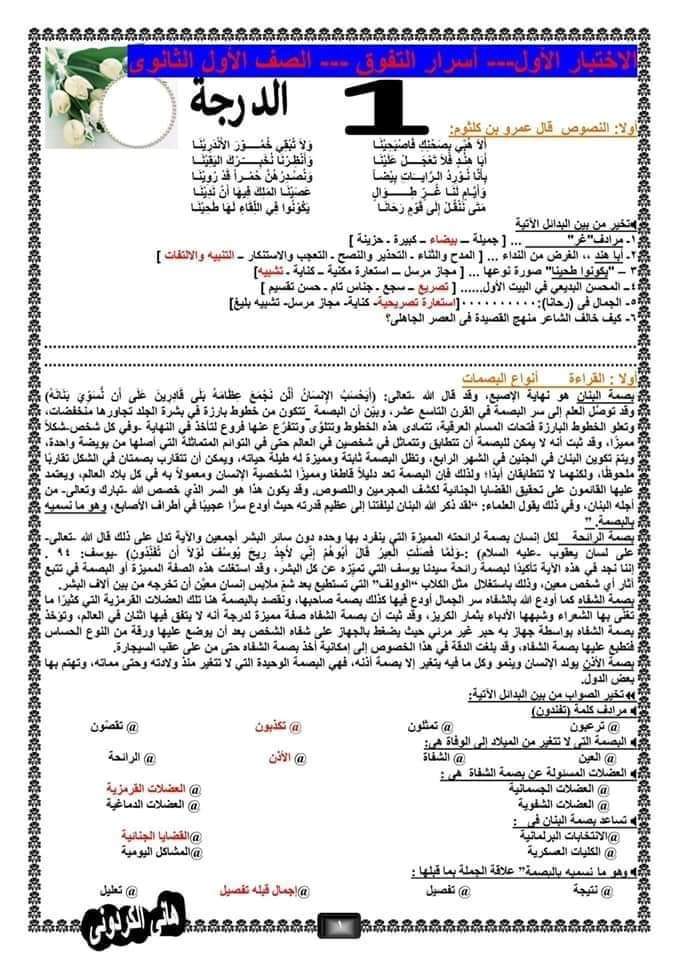 الاختبار الأول--- أسرار التفوق --- الصف الأول الثانوى
1 الدرجة
أولا: النصوص قال عمرو بن كلثوم:
ألا هُبِّي بِصَحْنِكِ فَاصْبَحِيْنَا وَلاَ تُبْقِي خُمُوْرَ الأَنْدَرِيْنَا
أَبَا هِنْدٍ فَلاَ تَعْجَلْ عَلَيْنَا وَأَنْظِرْنَا نُخَبِّرْكَ اليَقِيْنَا
بِأَنَّا نُوْرِدُ الرَّايَاتِ بِيْضاً وَنُصْدِرُهُنَّ حُمْراً قَدْ رَوِيْنَا
وَأَيَّامٍ لَنَا غُرٍّ طِوَالٍ عَصَيْنَا المَلِكَ فِيهَا أَنْ نَدِيْنَا
مَتَى نَنْقُلْ إِلَى قَوْمٍ رَحَانَا يَكُوْنُوا فِي اللِّقَاءِ لَهَا طَحِيْنَا
تخير من بين البدائل الآتية
١- مرادف"غر" ... [ جميلة – بيضاء – كبيرة - حزينة ]
٢- أبا هند ،، الغرض من النداء ... [ المدح والثناء - التحذير والنصح - التعجب والاستنكار – التنبيه والالتفات ]
٣ – "يكونوا طحينا" صورة نوعها ... [ مجاز مرسل – استعارة مكنية – كناية - تشبيه]
٤ – المحسن البديعي في البيت الأول...... [ تصريع – سجع - جناس تام - حسن تقسيم ]
٥- الجمال فى (رحانا):٠٠٠٠٠٠٠٠٠٠[استعارة تصريحية- كناية- مجاز مرسل- تشبيه بليغ]
٦- كيف خالف الشاعر منهج القصيدة فى العصر الجاهلى؟
أولا : القراءة أنواع البصمات
بصمة البنان هو نهاية الإصبع، وقد قال الله -تعالى: (أَيَحْسَبُ الإِنسَانُ أَلَّن نَجْمَعَ عِظَامَهُ بَلَى قَادِرِينَ عَلَى أَن نُّسَوِّيَ بَنَانَهُ)
وقد توصَّل العلم إلى سر البصمة في القرن التاسع عشر، وبيّن أن البصمة تتكون من خطوط بارزة في بشرة الجلد تجاورها منخفضات،
وتعلو الخطوط البارزة فتحات المسام العرقية، تتمادى هذه الخطوط وتتلوَّى وتتفرَّع عنها فروع لتأخذ في النهاية -وفي كل شخص-شكلاً
مميزًا، وقد ثبت أنه لا يمكن للبصمة أن تتطابق وتتماثل في شخصين في العالم حتى في التوائم المتماثلة التي أصلها من بويضة واحدة،
ويتم تكوين البنان في الجنين في الشهر الرابع، وتظل البصمة ثابتة ومميزة له طيلة حياته، ويمكن أن تتقارب بصمتان في الشكل تقاربًا
ملحوظًا، ولكنهما لا تتطابقان أبدًا؛ ولذلك فإن البصمة تعد دليلًا قاطعًا ومميزًا لشخصية الإنسان ومعمولاً به في كل بلاد العالم، ويعتمد
عليها القائمون على تحقيق القضايا الجنائية لكشف المجرمين واللصوص. وقد يكون هذا هو السر الذي خصص الله -تبارك وتعالى- من
أجله البنان، وفي ذلك يقول العلماء: "لقد ذكر الله البنان ليلفتنا إلى عظيم قدرته حيث أودع سرًّا عجيبًا في أطراف الأصابع، وهو ما نسميه
بالبصمة. "
بصمة الرائحة لكل إنسان بصمة لرائحته المميزة التي ينفرد بها وحده دون سائر البشر أجمعين والآية تدل على ذلك قال الله -تعالى-
على لسان يعقوب -عليه السلام-: (وَلَمَّا فَصَلَتِ الْعِيرُ قَالَ أَبُوهُمْ إِنِّي لَأَجِدُ رِيحَ يُوسُفَ لَوْلَا أَن تُفَنِّدُونِ) -يوسف: ٩٤ .
إننا نجد في هذه الآية تأكيدًا لبصمة رائحة سيدنا يوسف التي تميزه عن كل البشر، وقد استغلت هذه الصفة المميزة أو البصمة في تتبع
آثار أي شخص معين، وذلك باستغلال مثل الكلاب "الوولف" التي تستطيع بعد شمّ ملابس إنسان معيّن أن تخرجه من بين آلاف البشر.
بصمة الشفاه كما أودع الله بالشفاه سر الجمال أودع فيها كذلك بصمة صاحبها، ونقصد بالبصمة هنا تلك العضلات القرمزية التي كثيرًا ما
تغنَّى بها الشعراء وشبهها الأدباء بثمار الكريز، وقد ثبت أن بصمة الشفاه صفة مميزة لدرجة أنه لا يتفق فيها اثنان في العالم، وتؤخذ
بصمة الشفاه بواسطة جهاز به حبر غير مرئي حيث يضغط بالجهاز على شفاه الشخص بعد أن يوضع عليها ورقة من النوع الحساس
فتطبع عليها بصمة الشفاه، وقد بلغت الدقة في هذا الخصوص إلى إمكانية أخذ بصمة الشفاه حتى من على عقب السيجارة.
بصمة الأذن يولد الإنسان وينمو وكل ما فيه يتغير إلا بصمة أذنه، فهي البصمة الوحيدة التي لا تتغير منذ ولادته وحتى مماته، وتهتم بها
بعض الدول.
تخير الصواب من بين البدائل الآتية:
مرادف كلمة (تفندون)
@ ترعبون @ تمثلون @ تكذبون @ تقصّون
البصمة التى لا تتغير من الميلاد إلى الوفاة هى:
@ العين @ الشفاة @ الأذن @ الرائحة
العضلات المسئولة عن بصمة الشفاة هى :
@ العضلات الجسمانية @ العضلات القرمزية
@ العضلات الشفوية @ العضلات الدماغية
تساعد بصمة البنان فى :
@الانتخابات البرلمانية @ القضايا الجنائية
@ الكليات العسكرية @ المشاكل اليومية
وهو ما نسميه بالبصمة" علاقة الجملة بما قبلها :
@ نتيجة @ تفصيل @إجمال قبله تفصيل @ تعليل
هانى الكردونى
١